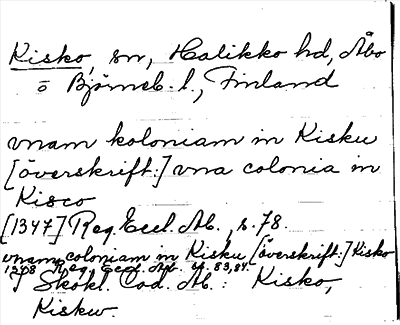 Kisko, sn, Halikko hd, Åbo
o Björneb. l., Finland
vnam koloniam in Kisku
[överskrift:] vna colonia in
Kisco
[1347] Reg. Eccl. Ab., s. 78.
vnam coloniam in Kisku [överskrift:] Kisko
1308 Reg. Eccl. Ab. s. 83, 84.
I Skokl. Cod. Ab.: Kisko,
Kiskw.